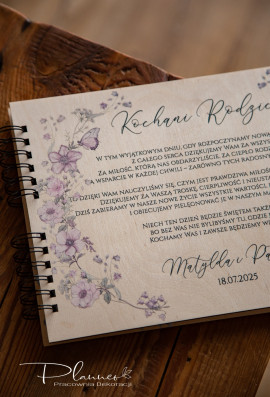 Kochani Rodzic
W TYM WYJĄTKOWYM DNIU, GDY ROZPOCZYNAMY NOW
Z CAŁEGO SERCA DZIĘKUJEMY WAM ZA WSZYS
ZA MIŁOŚĆ, KTÓRĄ NAS OBDARZYLIŚCIE, ZA CIEPŁO ROD
A WSPARCIE W KAŻDEJ CHWILI – ZARÓWNO TYCH RADOSNY
DZIĘKI WAM NAUCZYLIŚMY SIĘ, CZYM JEST PRAWDZIWA MIŁOŚĆ
DZIĘKUJEMY ZA WASZĄ TROSKĘ, CIERPLIWOŚĆ I NIEUST
DZIŚ ZABIERAMY W NASZE NOWE ŻYCIE WSZYSTKIE WARTOŚCI,
I OBIECUJEMY PIELĘGNOWAĆ JE W NASZYM MA
NIECH TEN DZIEŃ BĘDZIE ŚWIĘTEM TAKŻ
BO BEZ WAS NIE BYLIBYŚMY TU, GDZIE
KOCHAMY WAS I ZAWSZE BĘDZIEMY W
Matylda i Pa
18.07.2025
Planner
Pracownia Dekoracji